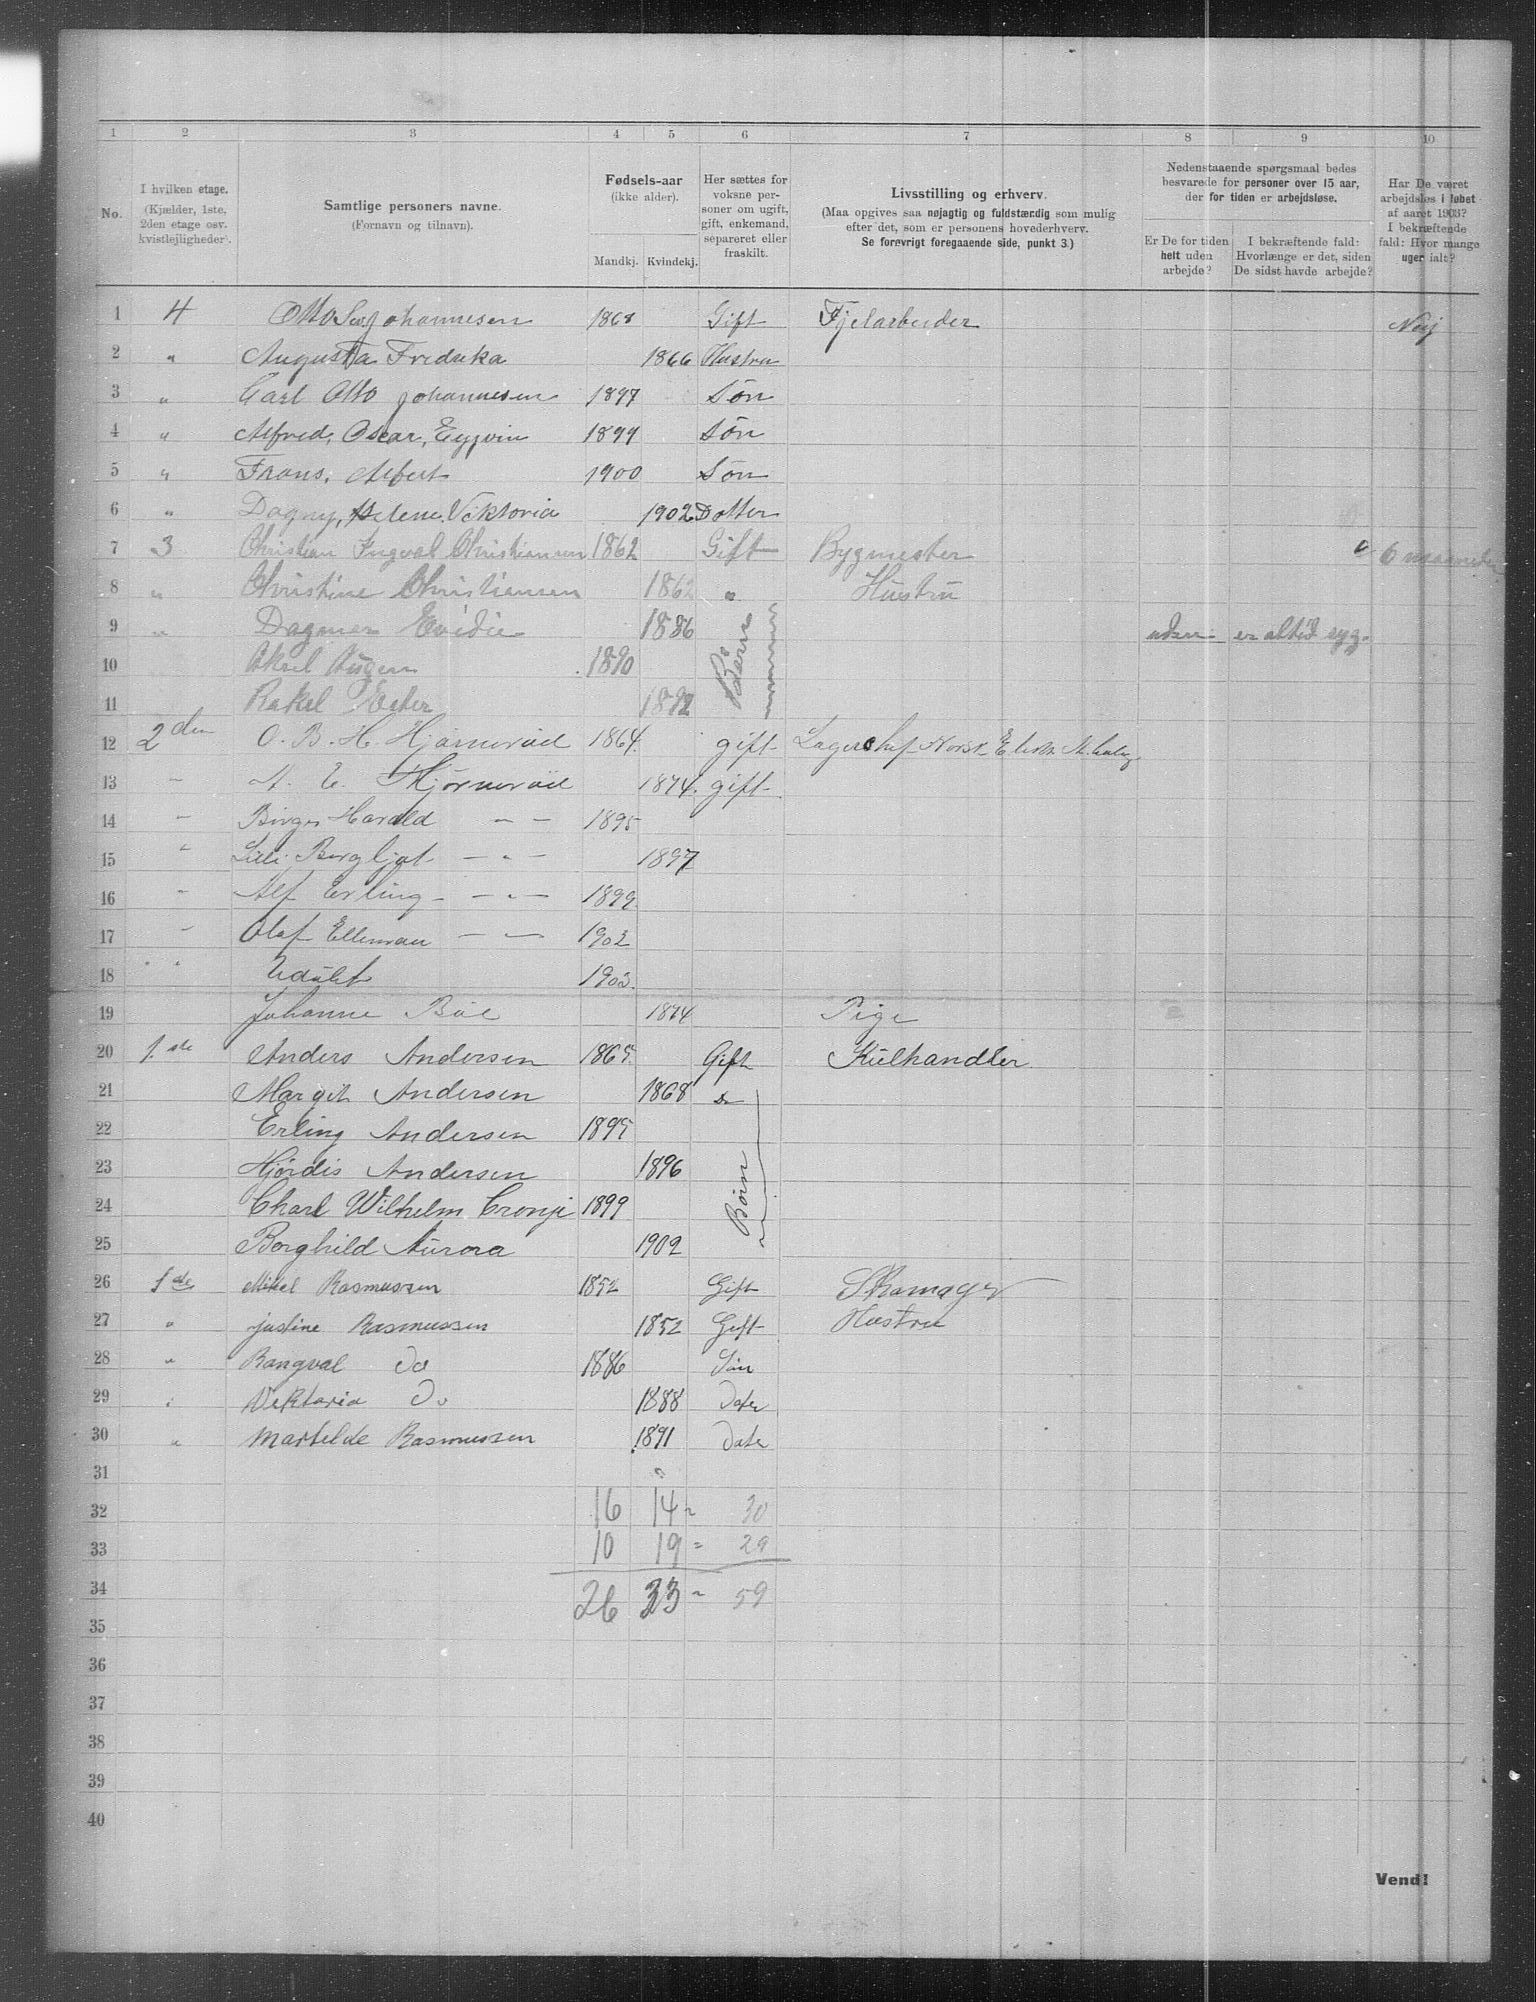 1 2 3 4 5 6 7 8 9 10
No.
I hvilken etage.
(Kjælder, 1ste,
2den etage osv.
kvistlejligheder).
Samtlige personers navne.
(Fornavn og tilnavn).
Fødsels-aar
(ikke alder).
Mandkj. Kvindekj.
Her sættes for
voksne per-
soner om ugift,
gift, enkemand,
separeret eller
fraskilt.
Livsstilling og erhverv.
(Maa opgives saa nøjagtig og fuldstærdig som mulig
efter det, som er personens hovederhverv.
Se forøvrigt foregaaende side, punkt 3.)
Nedenstaaende spørgsmaal bedes
besvarede for personer over 15 aar,
der for tiden er arbejdsløse.
Er De for tiden
helt uden
arbejde?
I bekræftende fald:
Hvorlænge er det, siden
De sidst havde arbejde?
Har De været
arbejdsløs i løbet
af aaret 1903?
I bekræftende
fald: Hvor mange
uger ialt?
1 4 Otto Johannesen 1868 Gift Fjelarbeider Nei
2 " Augusta Fredrika 1866 Hustru
3 " Carl Otto Johannesen 1897 Søn
4 " Alfred, Oscar, Eyvin 1899 Søn
5 " Frans, Albert 1900 Søn
6 " Dagny, Helene Viktoria 1902 Dotter
7 3 Christian Ingval Christiansen 1862 Gift Bygmester 6 maaneder
8 " Christine Christiansen 1862 " Hustru
9 " Dagmar Evidie 1886 Børn uden er altid syg.
10 Aksel Eugen 1890
11 Rakel Ester 1892
12 2den O. B. H. Hjørnerød 1864. gift Lagerchef Norsk Elektr.
13 " A. E. Hjørnerød 1874. gift
14 " Birger Harald — " — 1895
15 " Lilli Bergljot — " — 1897
16 " Alf Erling — " — 1899.
17 " Olaf Elleman — " — 1902
18 " " Udøbt 1903.
19 Johanne Bøe 1874 Pige
20 1.ste Anders Andersen 1865. Gift Kulhandler
21 Margit Andersen 1868 Do
22 Erling Andersen 1895 Børn
23 Hjørdis Andersen 1896
24 Charl Wilhelm Cronje 1899
25 Borghild Aurora 1902
26 1ste Mikel Rasmussen 1852 Gift Skomager
27 " Justine Rasmussen 1852 Gift Hustru
28 " Rangval Do 1886 Søn
29 " Viktoria Do 1888 Dater
30 " Martelde Rasmussen 1891 Date
31
32 16 14 = 30
33 10 19 = 29
34 26 33 = 59
35
36
37
38
39
40
Vend!